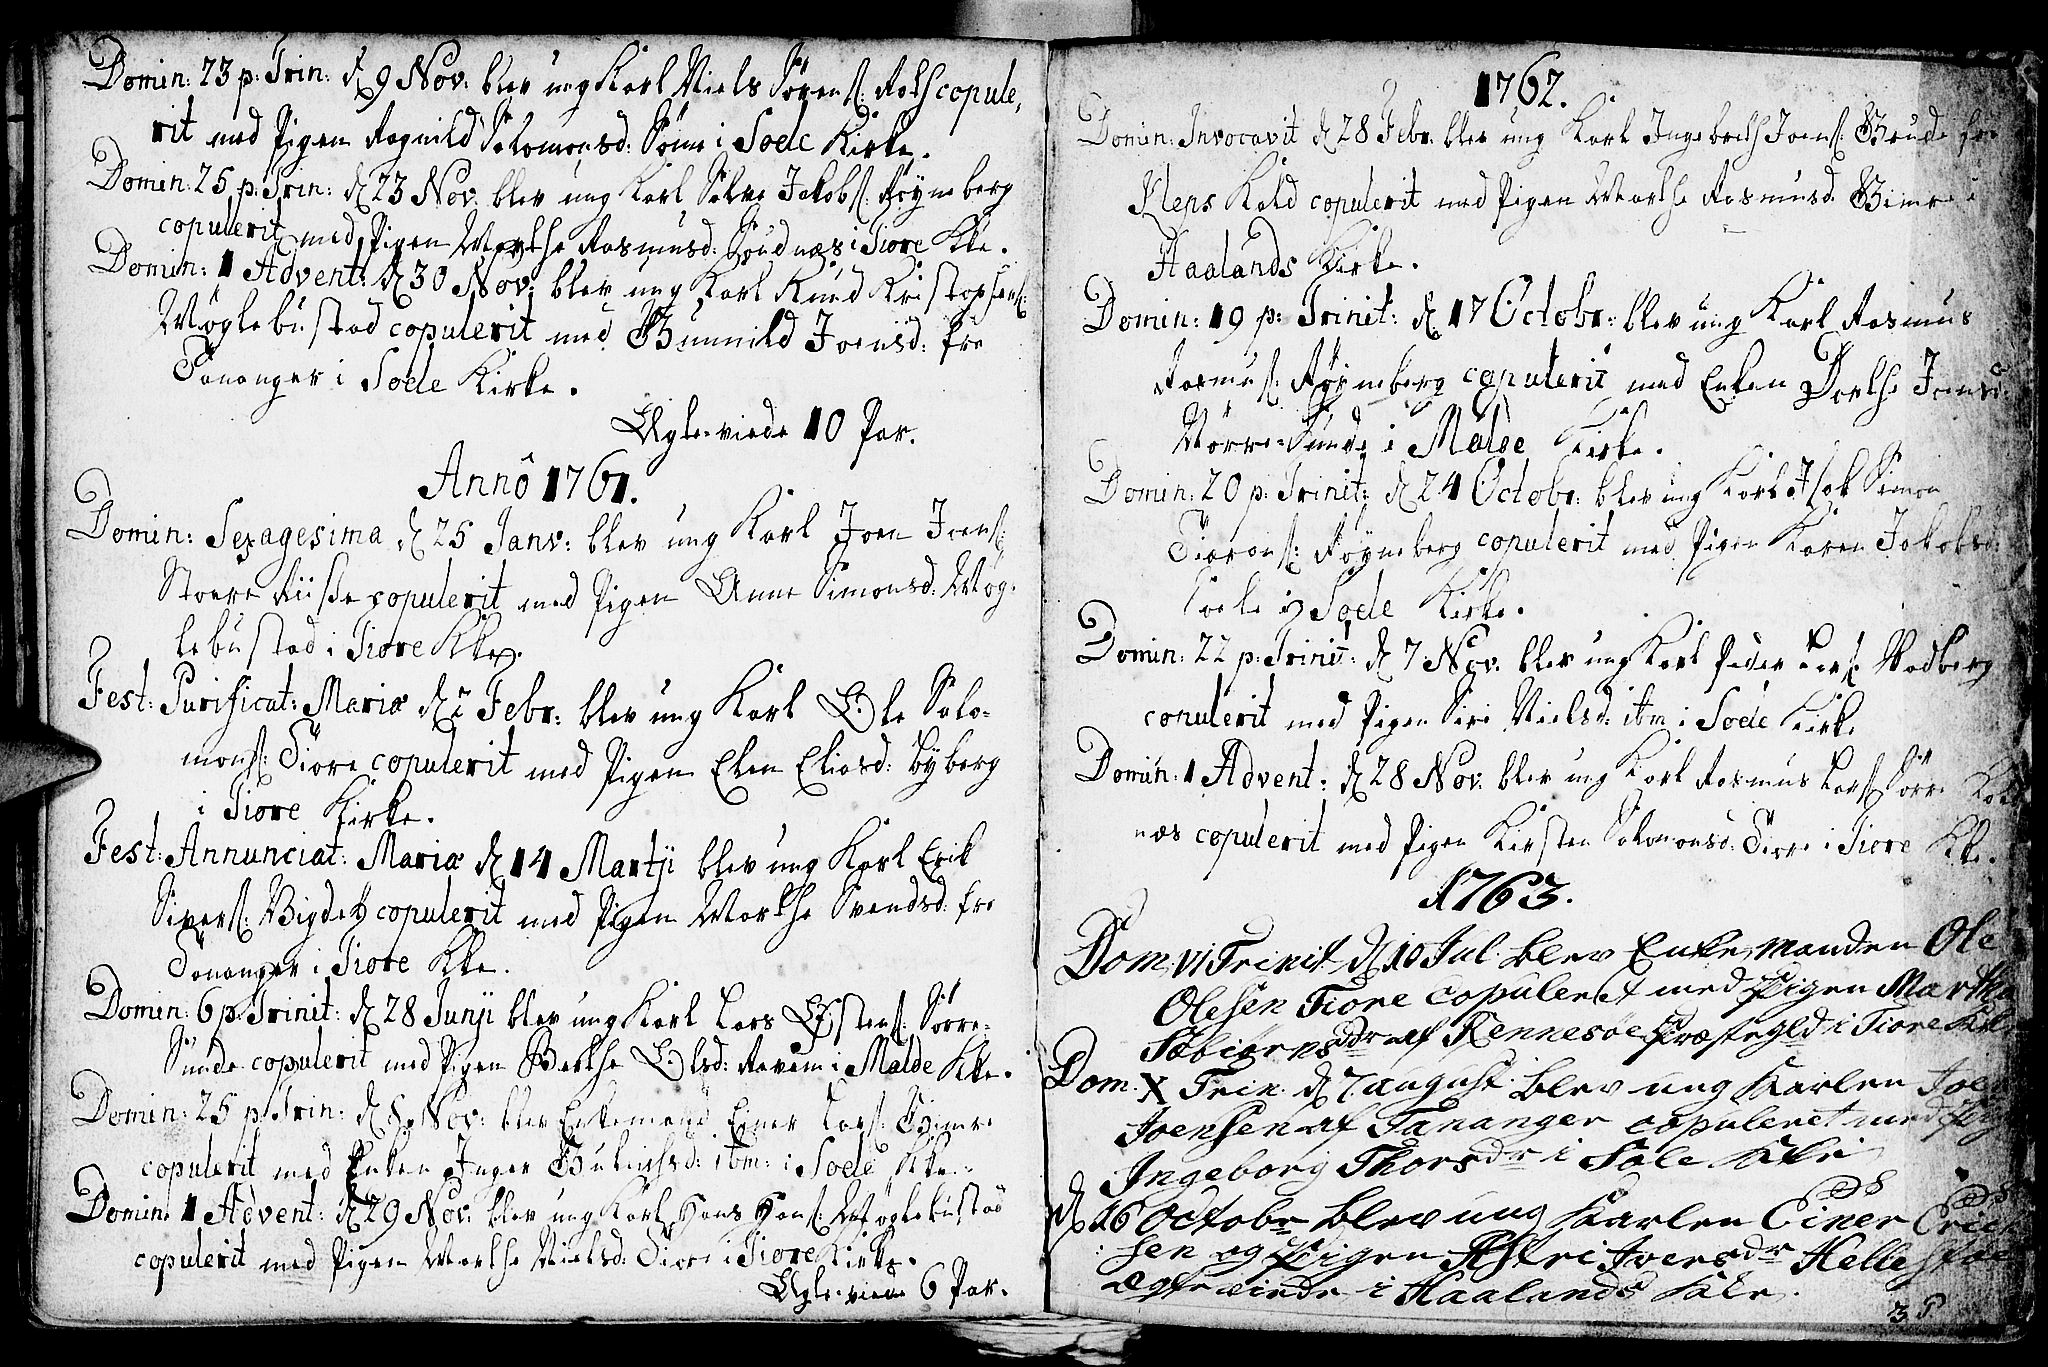 Domin: 23 p: Trin: d 9 Nov: blev ung Karl Niels Sörens: Roth copule,
rit med Pigen Ragnild Solomonsd: Söme i Soele Kirke.
Domin: 25 p: Trin: d 23 Nov: blev ung Karl Salve Jakobs: Röyneberg
copulerit med Pigen Marthe Rasmusd: Soudnæs i Tiore Kke.
Domin: 1 Advent: d 30 Nov: blev ung Karl Knud Kristophers:
Møglebustad copulerit med Gunnild Joensd: fra
Tananger i Soele Kirke.
Ægte-viede 10 Par.
Annô 1761.
Domin: Sexagesima d 25 Janv: blev ung Karl Joen Joens:
Stoere Riisße copulerit med Pigen Anne Simonsd: Møg-
lebustad i Tiore Kke.
Fest: Purificat: Mariæ d 2 Febr: blev ung Karl Ole Solo-
mons: Tiore copulerit med Pigen Elen Eliasd: Byberg
i Tiore Kirke.
Fest: Annunciat: Mariæ d 14 Martji blev ung Karl Erik
Sivers: Bigdel copulerit med Pigen Marthe Svendsd: fra
Tananger i Tiore Kke.
Domin: 6 p: Trinit: d 28 Junji blev ung Karl Lars Østens: Sörre-
Sunde copulerit med Pigen Berthe Olsd: Revem i Malde Kke.
Domin: 25 p: Trin: d 8 Nov: blev Enkemand Einer Lars: Gimre
copulerit med Enken Inger Gulichsd: itm: i Soele Kke.
Domin: 1 Advent: d 29 Nov: blev ung Karl Hans Hans: Møglebustad
copulerit med Pigen Marthe Nielsd: Tiore i Tiore Kirke.
Ægte-viede 6 Par.
1762.
Domin: Invocavit d 28 Febr: blev ung Karl Ingebreth Joens: Grude fra
Kleps Kald copulerit med Pigen Marthe Rasmusd: Gimre i
Haalands Kirke.
Domin: 19 p: Trinit: d 17 Octobr: blev ung Karl Rasmus
Rasmus: Röyneberg copulerit med Enken Dorthe Joensd:
Nörre-Sunde i Malde Kirke.
Domin: 20 p: Trinit: d 24 Octobr: blev ung Karl Isak Simon
Tiorans: Röyneberg copulerit med Pigen Karen Jakobsd:
Soele i Soele Kirke.
Domin: 22 p: Trinit: d 7 Nov: blev ung Karl Peder Lars: Vadberg
copulerit med Pigen Siri Nielsd: itm i Soele Kirke
Domin: 1 Advent: d 28 Nov: blev ung Karl Rasmus Lars: Sörre Kol-
næs copulerit med Pigen Kirsten Solomonsd: Tiore i Tiore Kke.
1763.
Dom: VI Trinit: d 10 Jul: blev Enke-Manden Ole
Olesen Tiore copuleret med Pigen Martha
Sebiørns dr af Rennesøe Præstegld: i Tiore Kirke
Dom: X Trin: d 7 august: blev ung Karlen Joen
Joensen af Tananger copuleret med Pig
Ingeborg Thors dr i Sole Kirke
d 16 Octobr blev ung Karlen Einer Erich
:sen og Pigen Astri Ivers dr Hellestøe
ægteviede i Haalands Kirke.
3 P.